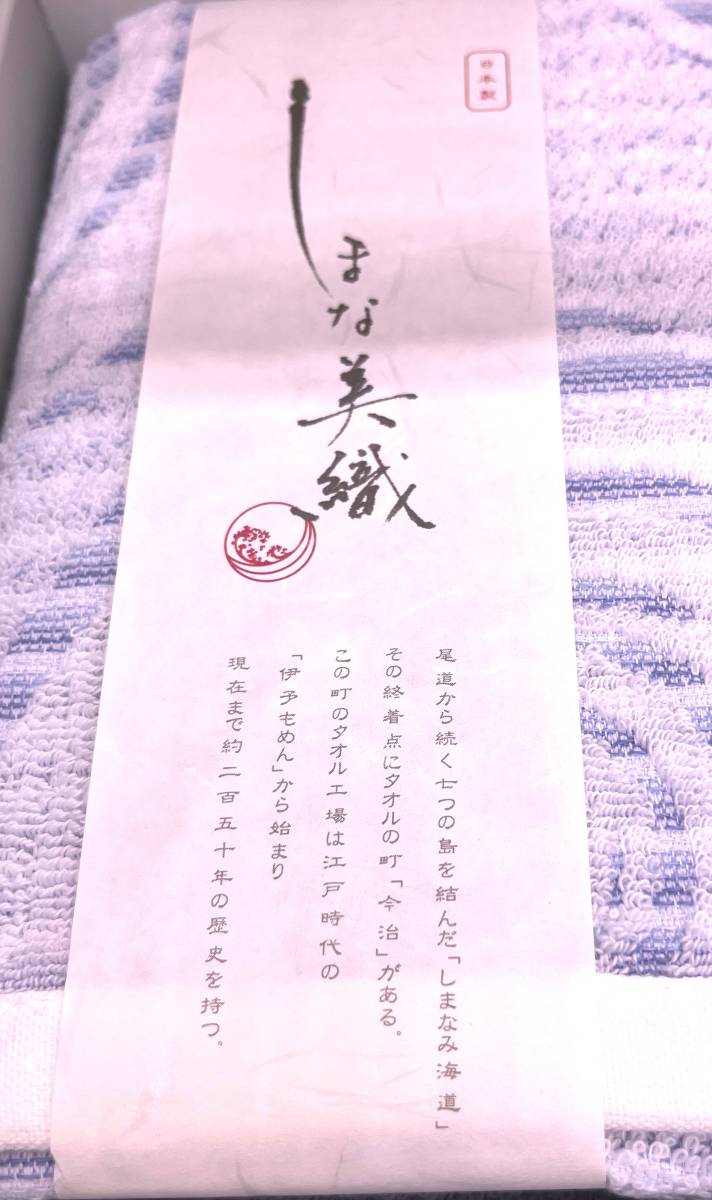 日本製
しまな美織
尾道から続く七つの島を結んだ「しまなみ海道」
その終着点にタオルの町「今治」がある。
この町のタオル工場は江戸時代の
「伊予もめん」から始まり
現在まで約二百五十年の歴史を持つ。